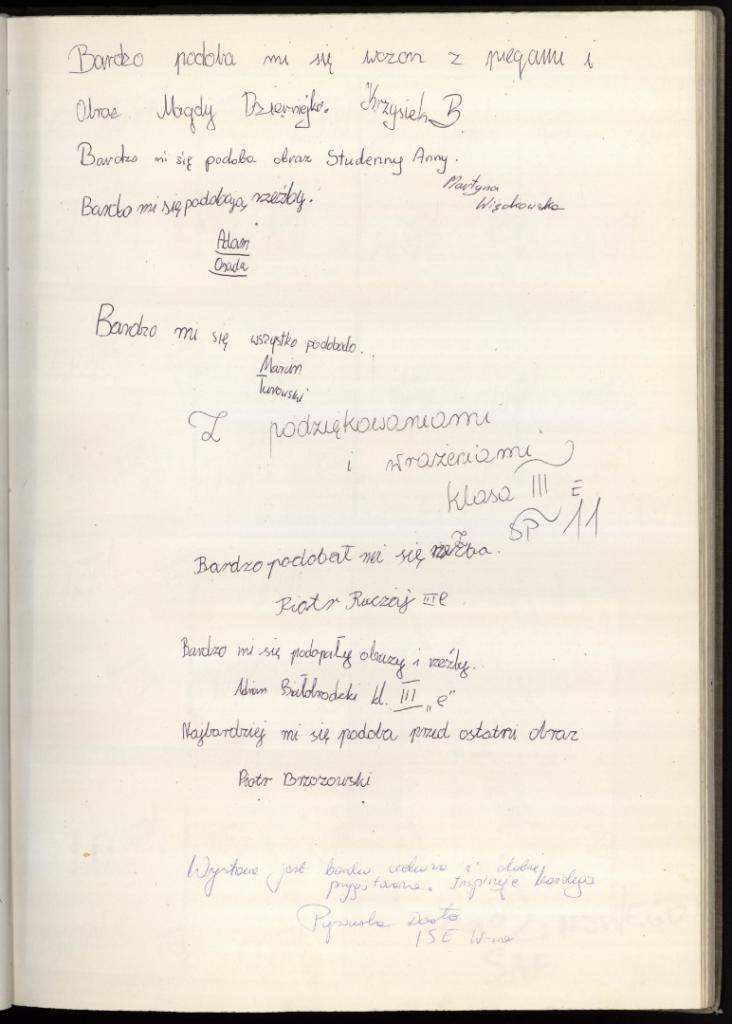 Bardzo podoba mi się wazon z piegami i
Obraz Magdy Krzysiek B
Bardzo mi się podoba obraz Studenny Anny.
Martyna
Bardzo mi się podobają rzeźby.
Adam
Osada
Bardzo mi się wszystko podobało.
Marcin
Turowski
Z podziękowaniami
i wrażeniami
klasa III E
SP 11
Bardzo podobał mi się rzeźba.
Piotr Ruczaj III e
Bardzo mi się podopały obrazy i rzeźby.
Adrian Białobrodzki kl. III "e"
Najbardziej mi się podoba przed ostatni obraz
Piotr Brzozowski
Wystawa jest bardzo i dobrze
przygotowana. Inspiruje każdego